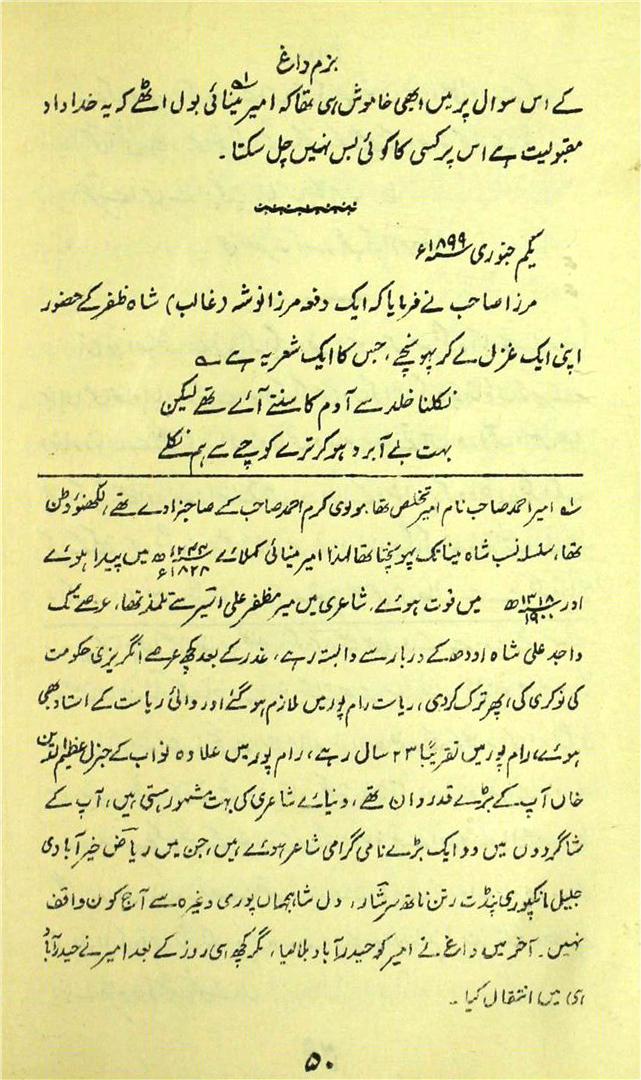 بزم داغ
کے اس سوال پر میں ابھی خاموش ہی تھا کہ امیر مینائی ؎۱ بول اٹھے کہ یہ خداداد
مقبولیت ہے اس پر کسی کا کوئی بس نہیں چل سکتا۔
یکم جنوری ۱۸۹۹ء
مرزا صاحب نے فرمایا کہ ایک دفعہ مرزا نوشہ (غالب) شاہ ظفر کے حضور
اپنی ایک غزل لے کر پہونچے، جس کا ایک شعر یہ ہے ؎
نکلنا خلد سے آدم کا سنتے آئے تھے لیکن
بہت بے آبرو ہو کر ترے کوچے سے ہم نکلے
؎۱ امیر احمد صاحب نام امیر تخلص تھا۔ مولوی کرم احمد صاحب کے صاحبزادے تھے، لکھنؤ وطن
تھا، سلسلہ نسب شاہ مینا تک پہونچتا تھا لہذا امیر مینائی کہلائے ۱۲۴۳ھ ۱۸۲۸ء میں پیدا ہوئے
اور ۱۳۱۸ھ ۱۹۰۰ میں فوت ہوئے۔ شاعری میں میر مظفر علی اسیر سے تلمذ تھا، عرصے تک
واجد علی شاہ اودھ کے دربار سے وابستہ رہے، غدر کے بعد کچھ عرصے انگریزی حکومت
کی نوکری کی، پھر ترک کر دی، ریاست رام پور میں ملازم ہو گئے اور والئ ریاست کے استاد بھی
ہوئے، رام پور میں تقریباً ۲۳ سال رہے، رام پور میں علاوہ نواب کے جنرل عظیم الدین
خاں آپ کے بڑے قدردان تھے، دنیائے شاعری کی بہت مشہور ہستی ہیں، آپ کے
شاگردوں میں دو ایک بڑے نامی گرامی شاعر ہوئے ہیں، جن میں ریاض خیر آبادی
جلیل مانکپوری پنڈت رتن ناتھ سرشار، دل شاہجہاں پوری وغیرہ سے آج کون واقف
نہیں۔ آخر میں داغ نے امیر کو حیدرآباد بلا لیا، مگر کچھ ہی روز کے بعد امیر نے حیدرآباد
ہی میں انتقال کیا۔
۵۰